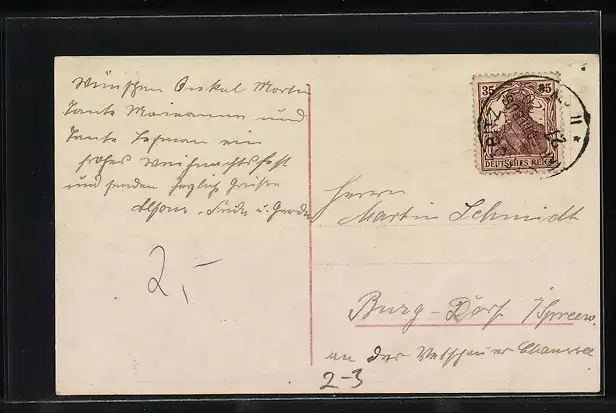 Wünschen Onkel Martin
Tante Marianne und
Tante Lehman ein
frohes Weihnachtsfest
und senden herzliche Grüsse
Alfons, Frieda u. Gerda
2,-
35 35
DEUTSCHES REICH
Herrn
Martin Schmidt
Burg-Dorf /Spreew.
an der Vetschauer Chaussee
2-3